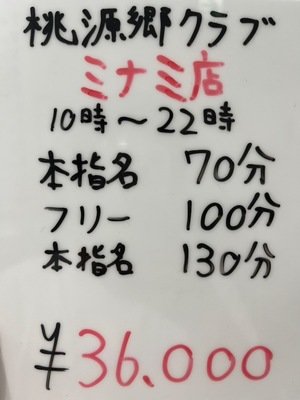 桃源郷クラブ
ミナミ店
10時～22時
本指名 70分
フリー 100分
本指名 130分
¥36.000